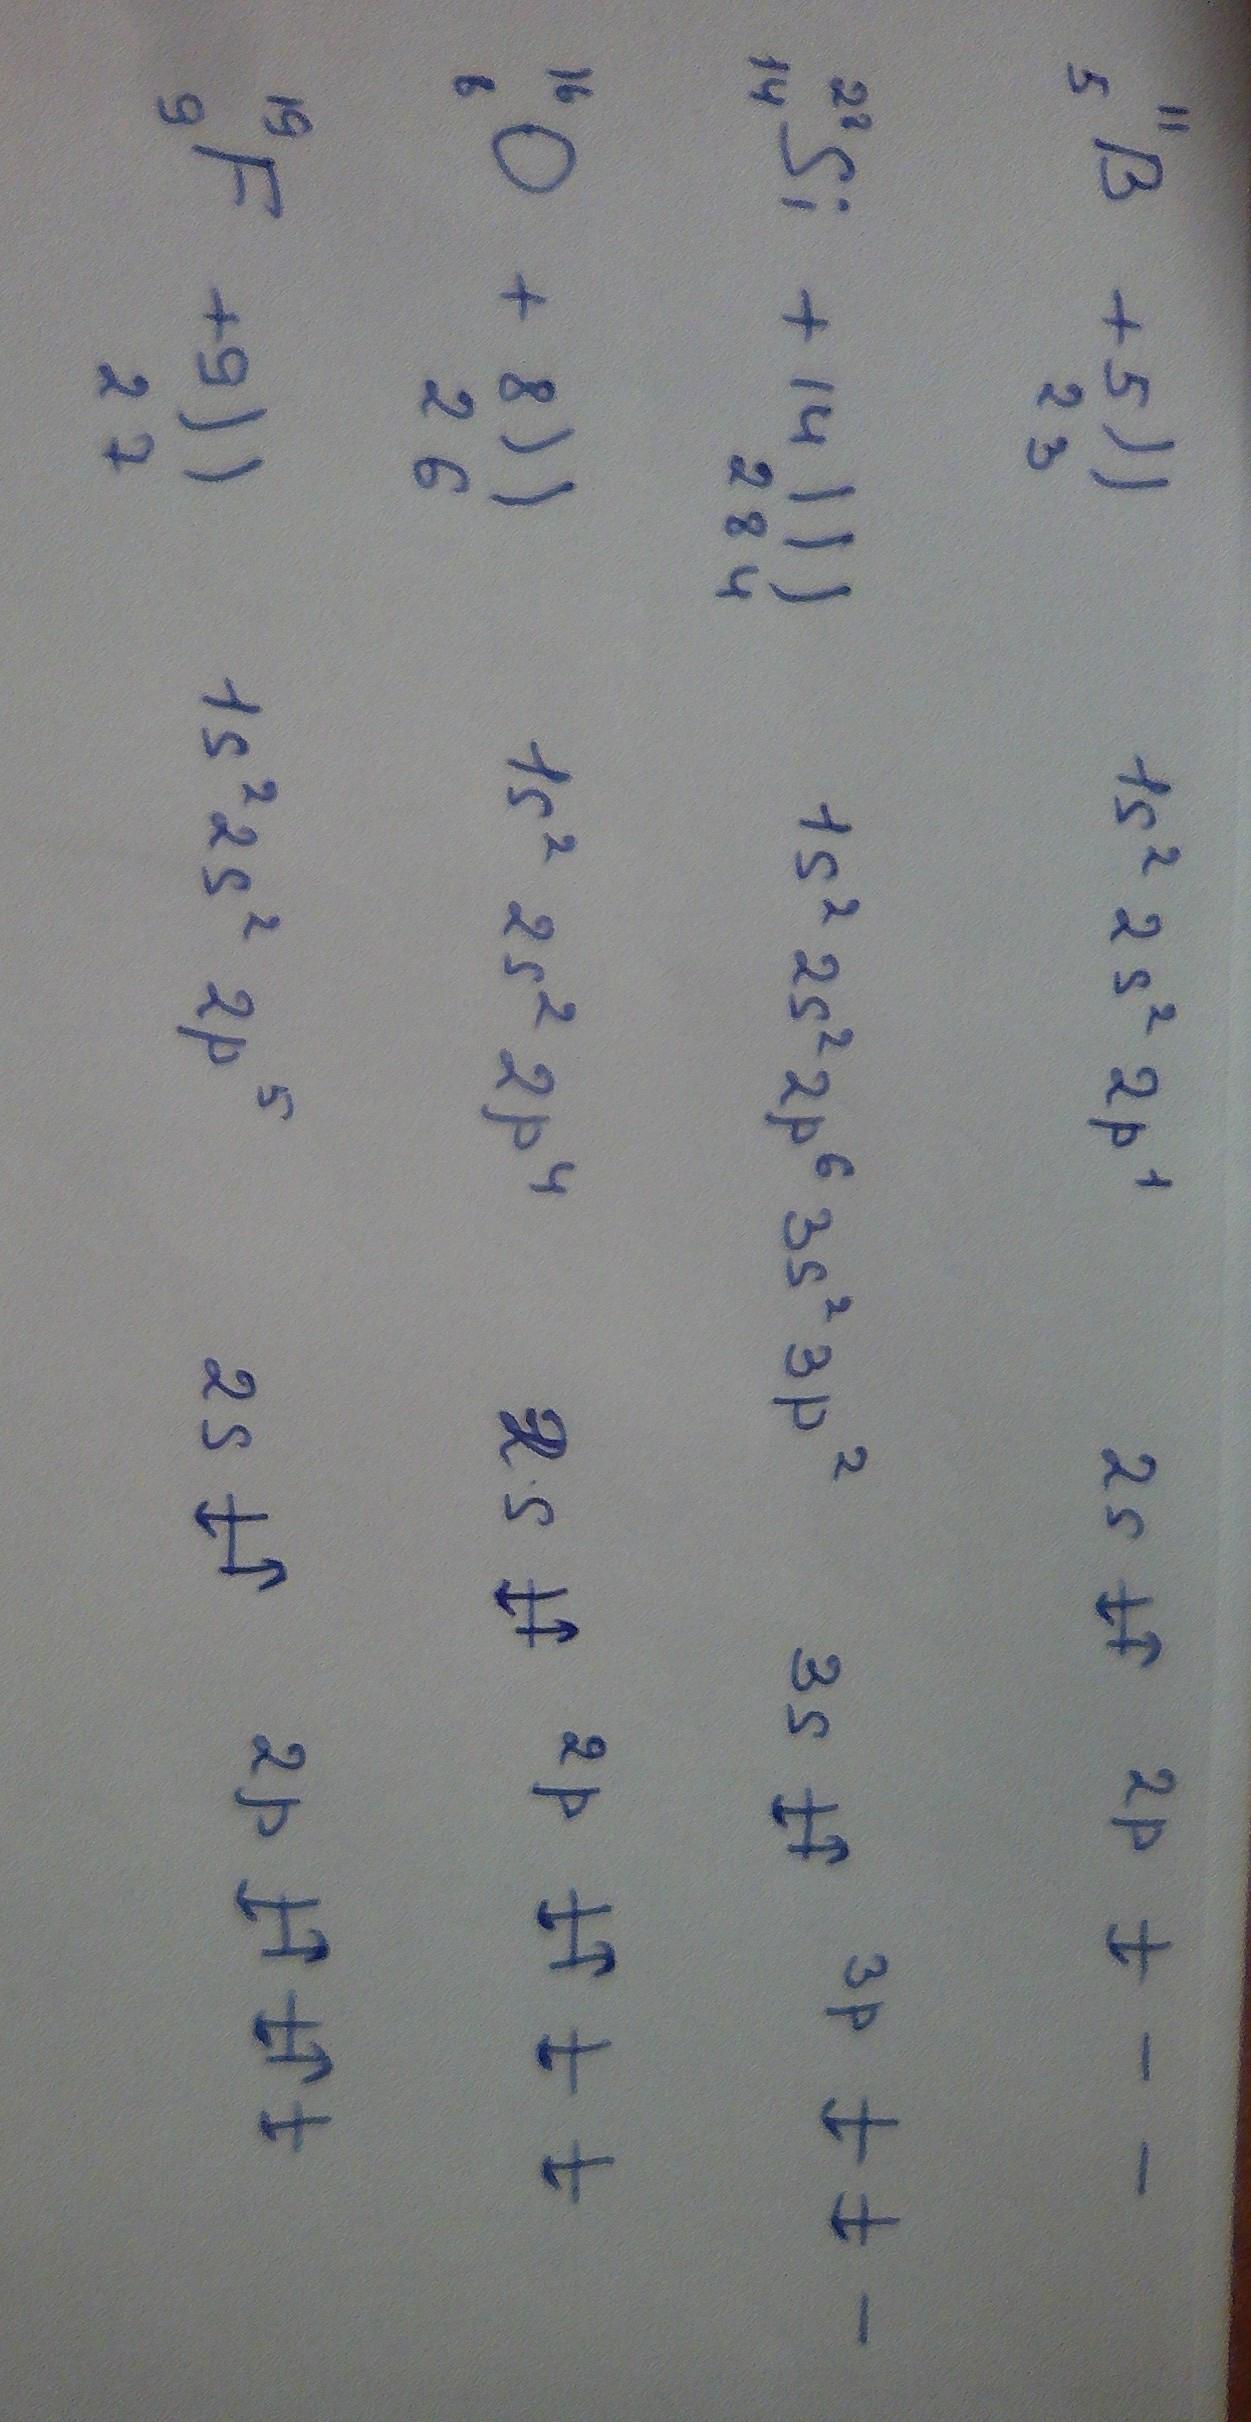 ¹¹₅B +5)) 2 3 1s² 2s² 2p¹ 2s ↑↓ 2p ↑ – –
²⁸₁₄Si +14))) 2 8 4 1s² 2s² 2p⁶ 3s² 3p² 3s ↑↓ 3p ↑ ↑ –
¹⁶₈O +8)) 2 6 1s² 2s² 2p⁴ 2s ↑↓ 2p ↑↓ ↑ ↑
¹⁹₉F +9)) 2 7 1s² 2s² 2p⁵ 2s ↑↓ 2p ↑↓ ↑↓ ↑